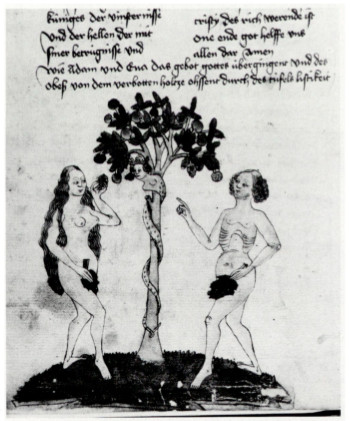 küniges der vinsternisse
und der hellen der mit
siner betrügnisse und
cristy des rich werende ist
one ende got helffe uns
allen dar Amen
Wie Adam und Eva das gebot gottes übergingent und des
obeß von dem verbotten holtze ossent durch des tüfels listikeit